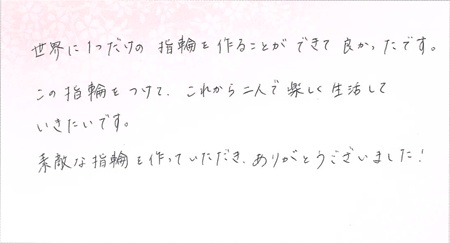 世界に1つだけの指輪を作ることができて良かったです。
この指輪をつけて、これから二人で楽しく生活して
いきたいです。
素敵な指輪を作っていただき、ありがとうございました！